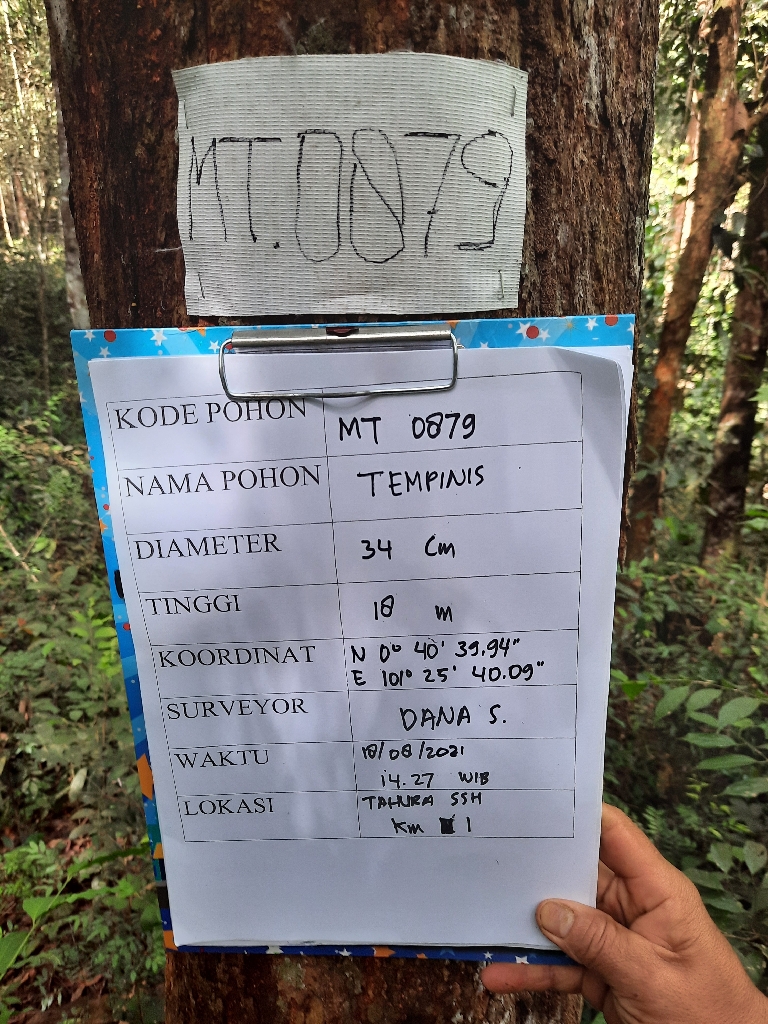 MT.0879
KODE POHON MT 0879
NAMA POHON TEMPINIS
DIAMETER 34 Cm
TINGGI 18 m
KOORDINAT N 0° 40' 39.94"
E 101° 25' 40.09"
SURVEYOR DANA S.
WAKTU 18/08/2021
14.27 WIB
LOKASI TAHURA SSH
Km 1